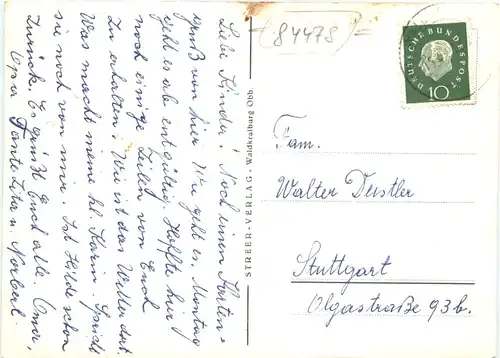 Liebe Kinder! Noch einen Karten=
gruß von hier. Nu geht es. Montag
geht es ab entgültig. Hoffte hier
noch einige Zeilen von Euch
zu erhalten. Wie ist das Wetter dort.
Was macht meine kl. Karin. Spricht
sie noch von mir. Ist Hilde schon
zurück. Es grüßt Euch alle. Oma,
Opa Tante Zita u. Norbert
STREER-VERLAG · Waldkraiburg Obb.
84478
DEUTSCHE BUNDESPOST
10
Fam.
Walter Deistler
Stuttgart
Olgastraße 93 b.